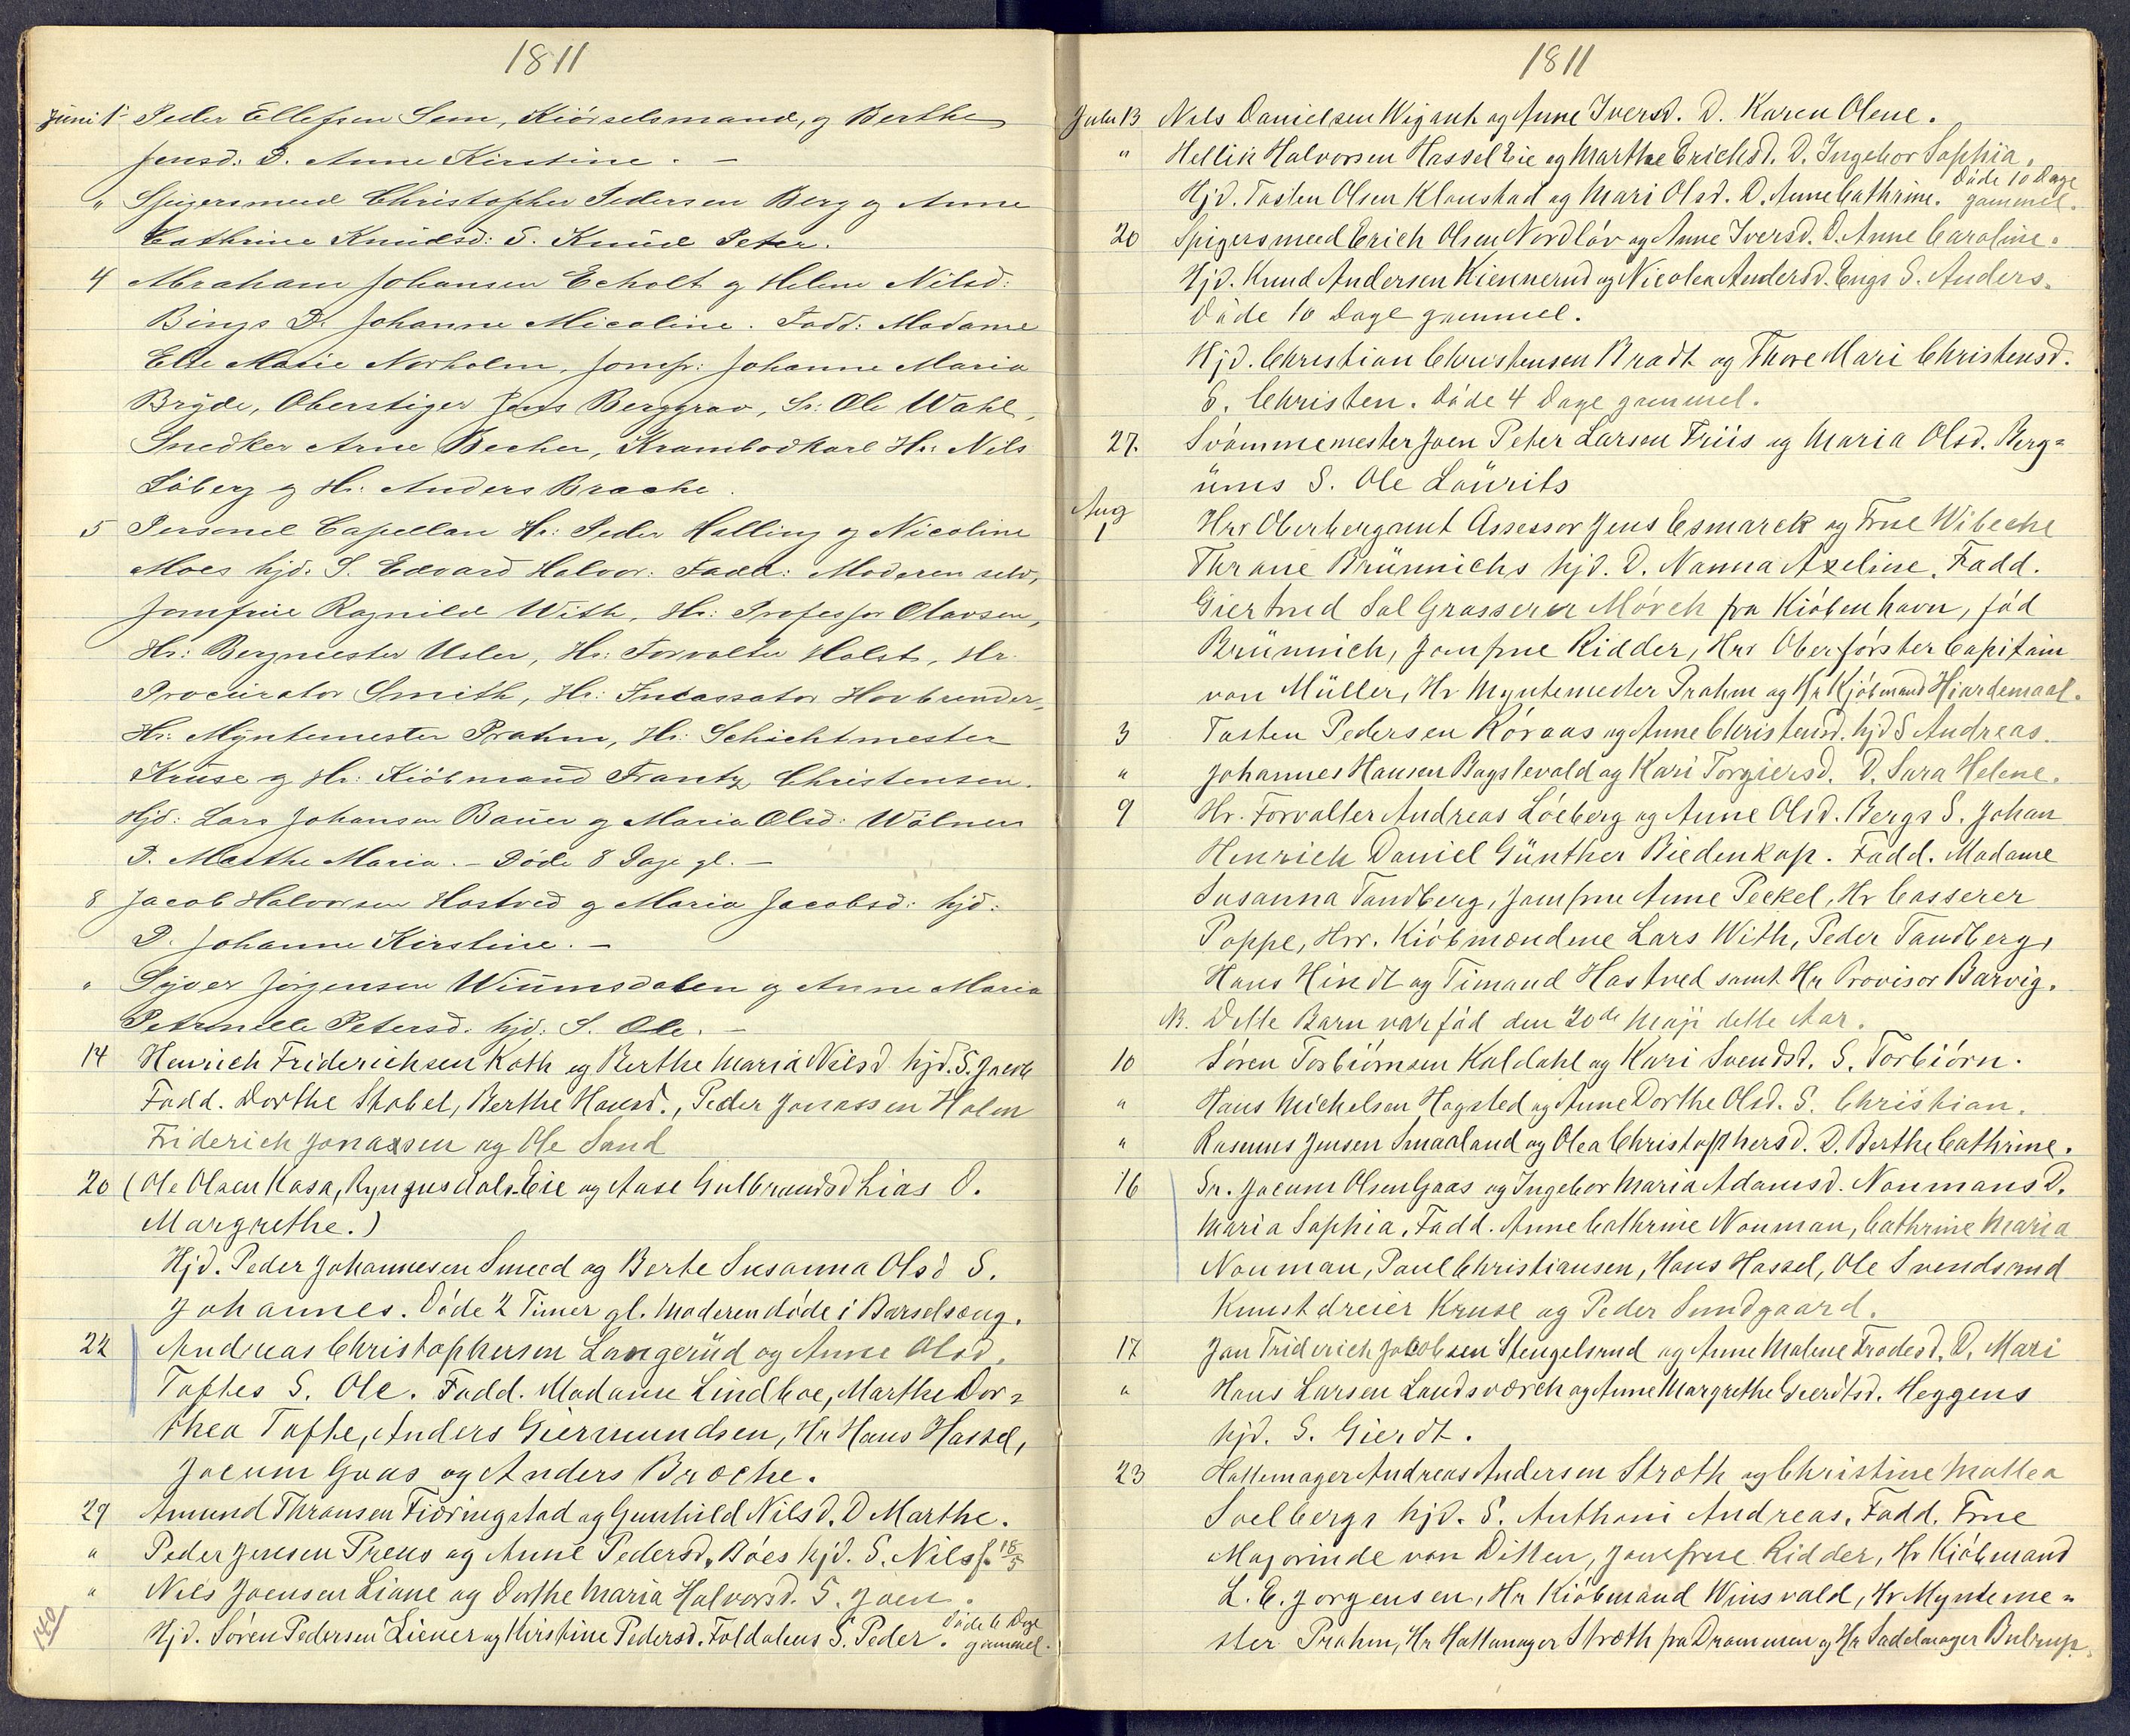 1811
Juni 1 Peder Ellefsen Sem, Kiörselsmand, og Berthe
Jensd: D. Anne Kirstine. —
" Spigersmed Christopher Pedersen Berg og Anne
Cathrine Knudsd: S. Knud Peter.
4 Abraham Johansen Echolt og Helene Nilsd:
Bings D. Johanne Micaline. Fadd: Madame
Else Marie Norholm, Jomfr: Johanne Maria
Bryde, Oberstiger Jens Berggrav, Sr: Ole Wahl,
Snedker Arne Becher, Krambodkarl Hr: Nils
Söberg og Hr: Anders Brache.
5 Personel Capellan Hr: Peder Halling og Nicoline
Moes hjd: S. Edvard Halvor: Fadd: Moderen selv,
Jomfrue Ragnild With, Hr: Professor Olavsen,
Hr: Bergmester Usler, Hr: Forvalter Holst, Hr.
Procurator Smith, Hr: Incassator Hovbrender,
Hr: Myntemester Prahm, Hr: Schichtmester
Kruse og Hr: Kiöbmand Frantz Christensen.
Hjd: Lars Johansen Bauer og Maria Olsd: Wölner
D. Marthe Maria. — Döde 8 Dage gl. —
8 Jacob Halvorsen Hostved og Maria Jacobsd: hjd:
D. Johanne Kirstine. —
" Syver Jörgensen Wiumsdalen og Anne Maria
Petrnille Petersd. hjd: S. Ole. —
14 Henrich Friderichsen Koth og Berthe Maria Nilsd hjd. S. Jacob
Fadd. Dorthe Stabel, Berthe Hansd., Peder Jonassen Holm
Friderich Jonassen og Ole Sand
20 (Ole Olsen Kasa, Ryngusdals Eie og Aase Gulbrandsd Lias D.
Margrethe.)
Hjd. Peder Johannesen Smed og Berte Susanna Olsd S.
Johannes. Döde 2 Timer gl. Moderen döde i Barselseng.
22 Andreas Christophersen Langerüd og Anne Olsd.
Toftes S. Ole. Fadd. Madame Lindboe, Marthe Dor=
thea Tofte, Anders Giermundsen, Hr Hans Hassel,
Jocum Gaas og Anders Broche.
29 Amund Thronsen Fieringstad og Gunhild Nilsd. D Marthe.
" Peder Jensen Prens og Anne Pedersd. Böes hjd. S. Nils f. 18/5
" Nils Joensen Liane og Dorthe Maria Halvorsd. S. Joen.
Hjd. Sören Pedersen Liener og Kirstine Pedersd. Foldalens S. Peder. Döde 6 Dage gammel.
140
1811
Juli 13 Nils Danielsen Wigant og Anne Iversd. D. Karen Olene.
" Hellik Halvorsen Hassel Eie og Marthe Erichsd. D. Ingebor Sophia.
Hjd. Tosten Olsen Klonstad og Mari Olsd. D. Anne Cathrine. Döde 10 Dage gammel.
20 Spigersmed Erich Olsen Nordlöv og Anne Iversd. D. Anne Caroline.
Hjd. Knud Andersen Kiennerud og Nicolea Andersd. Engs S. Anders.
Döde 10 Dage gammel.
Hjd. Christian Christensen Bradt og Thore Mari Christensd.
S. Christen. Döde 4 Dage gammel.
27. Svömmemester Joen Peter Larsen Friis og Maria Olsd. Berg=
üms S. Ole Laurits
Aug
1 Hrr Oberbergamt Assessor Jens Esmarck og Frue Wibeche
Thrane Brünnichs hjd. D. Nanna Axeline. Fadd.
Giertrud Sal Grasserer Mörch fra Kiöbenhavn, föd
Brünnich, Jomfrue Ridder, Hrr Oberförster Capitain
von Müller, Hr Myntemester Prahm og Hr Kjöbmand Hiardemaal.
3 Tosten Pedersen Röraas og Anne Christensd. hjd S Andreas.
" Johannes Hansen Bagstevold og Kari Torgiersd. D. Sara Helene.
9 Hr. Forvalter Andreas Löeberg og Anne Olsd. Bergs S. Johan
Henrich Daniel Günther Biedenkap. Fadd. Madame
Susanna Tandberg, Jomfrue Anne Peckel, Hr Casserer
Poppe, Hrr. Kiöbmændene Lars With, Peder Tandberg,
Hans Hindt og Timand Hastved samt Hr Provisor Barvig.
NB. Dette Barn var föd den 20de Maji dette Aar.
10 Sören Torbiörnsen Kaldahl og Kari Svendsd. S. Torbiörn.
" Hans Michelsen Hagsted og Anne Dorthe Olsd. S. Christian.
" Rasmus Jensen Smaaland og Olea Christophersd. D. Berthe Cathrine.
16 Sr. Jocum Olsen Gaas og Ingebor Maria Adamsd. Noumans D.
Maria Sophia. Fadd. Anne Cathrine Nouman, Cathrine Maria
Nouman, Paul Christiansen, Hans Hassel, Ole Svendsrud
Kunstdreier Kruse og Peder Sundgaard.
17 Jan Friderich Jacobsen Stengelsrud og Anne Malene Frodesd. D. Mari
" Hans Larsen Landsværch og Anne Margrethe Gierdtsd. Heggens
hjd. S. Gierdt.
23 Hattemager Andreas Andersen Stroth og Christine Mattea
Soelbergs hjd. S. Anthoni Andreas. Fadd. Frue
Majorinde von Ditten, Jomfrue Ridder, Hr Kiöbmand
L. C. Jorgensen, Hr Kiöbmand Winsvald, Hr Mynteme=
ster Prahm, Hr Hattemager Stroth fra Drammen og Hr Sadelmager Bulrup.